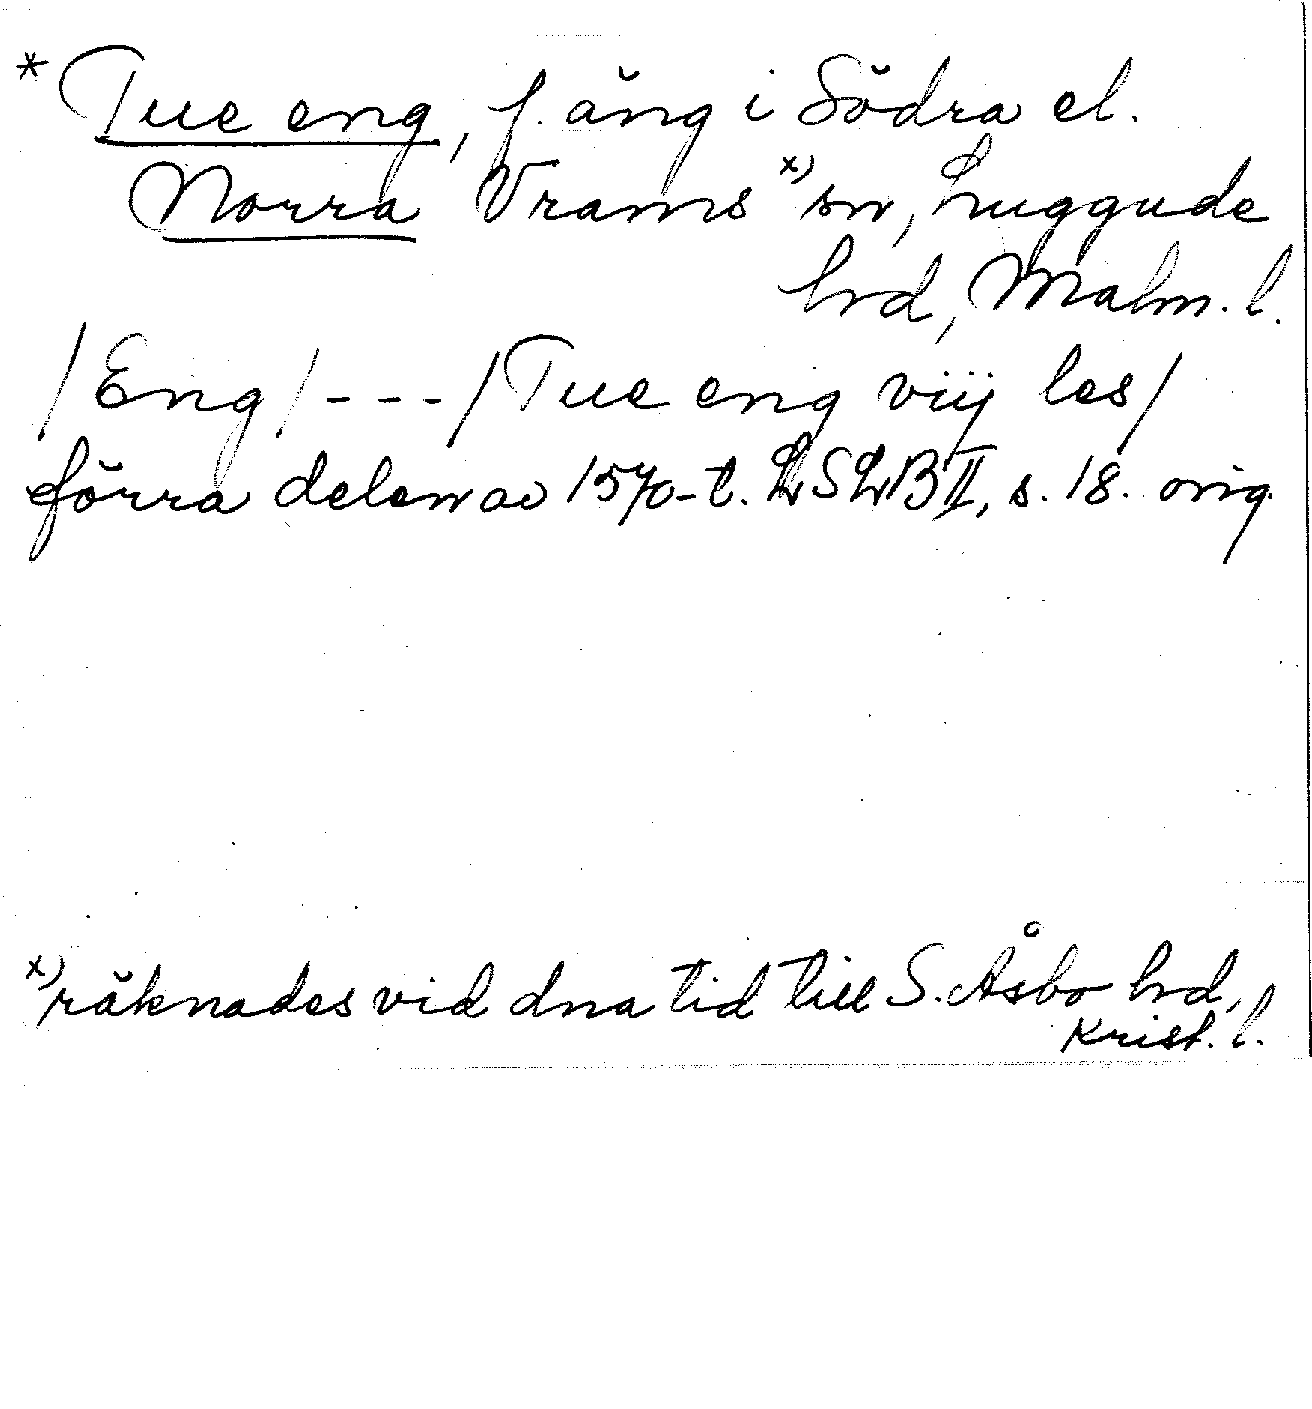 * Tue eng, f. äng i Södra el.
Norra Vrams x) sn, Luggude
hd, Malm. l.
/Eng/---/Tue eng vij les/
förra delen av 1570-t. LSLB II, s. 18. orig.
x) räknades vid dna tid till S. Åsbo hd,
Krist. l.